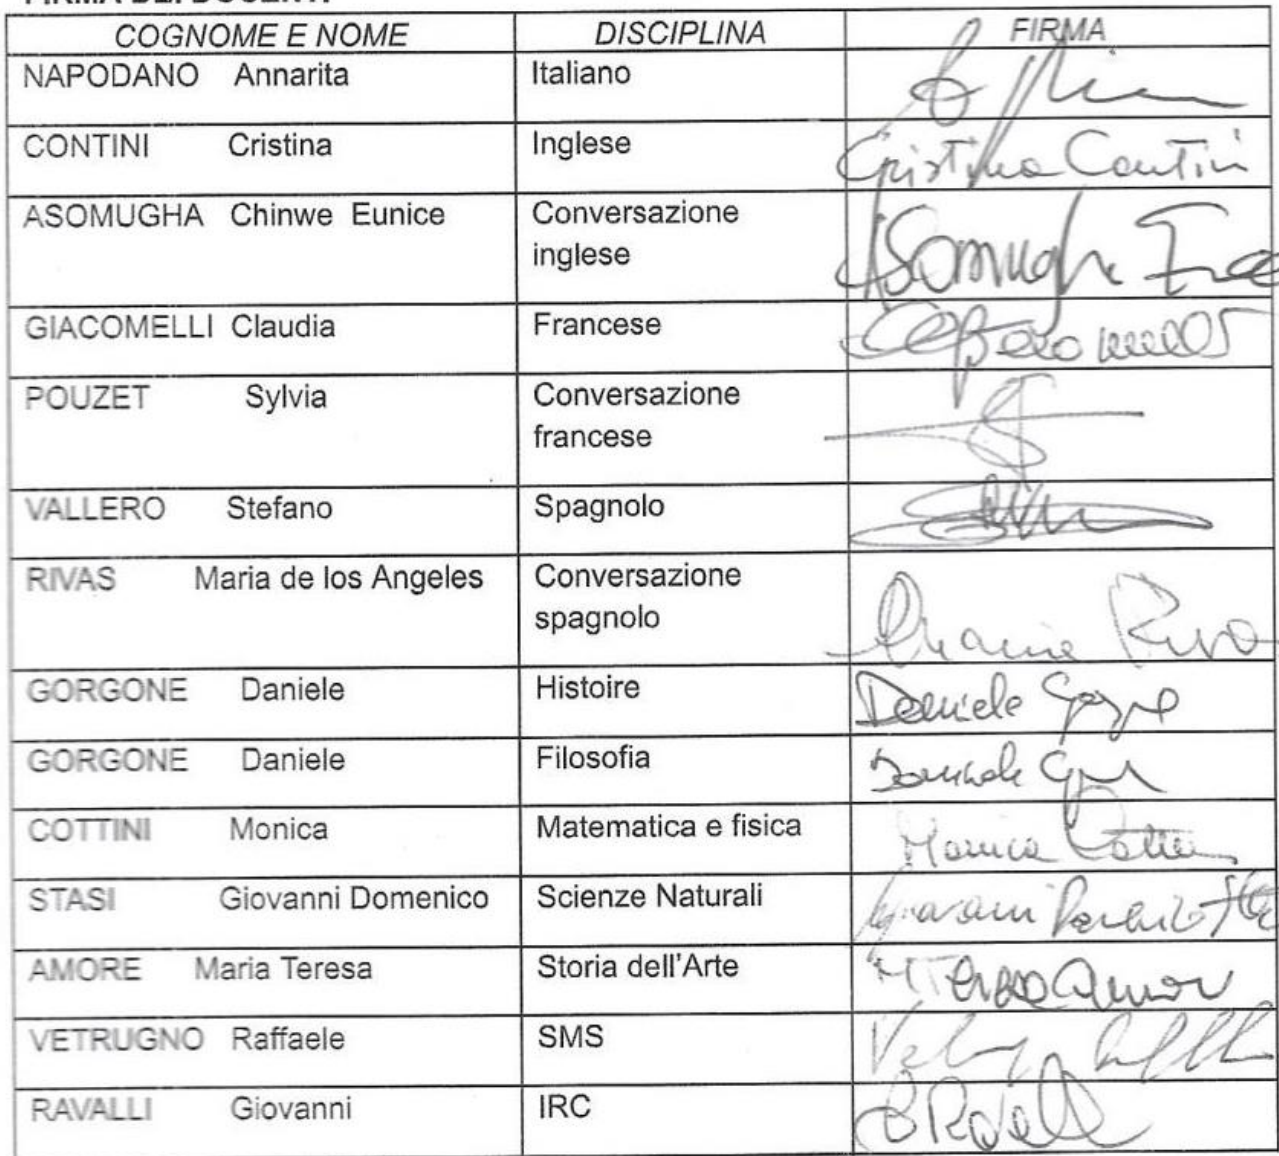 FIRMA DEI DOCENTI
COGNOME E NOME DISCIPLINA FIRMA
NAPODANO Annarita Italiano
CONTINI Cristina Inglese Cristina Contini
ASOMUGHA Chinwe Eunice Conversazione
inglese Asomugha
GIACOMELLI Claudia Francese
POUZET Sylvia Conversazione
francese
VALLERO Stefano Spagnolo
RIVAS Maria de los Angeles Conversazione
spagnolo
GORGONE Daniele Histoire Daniele
GORGONE Daniele Filosofia Daniele
COTTINI Monica Matematica e fisica Monica
STASI Giovanni Domenico Scienze Naturali
AMORE Maria Teresa Storia dell'Arte
VETRUGNO Raffaele SMS
RAVALLI Giovanni IRC